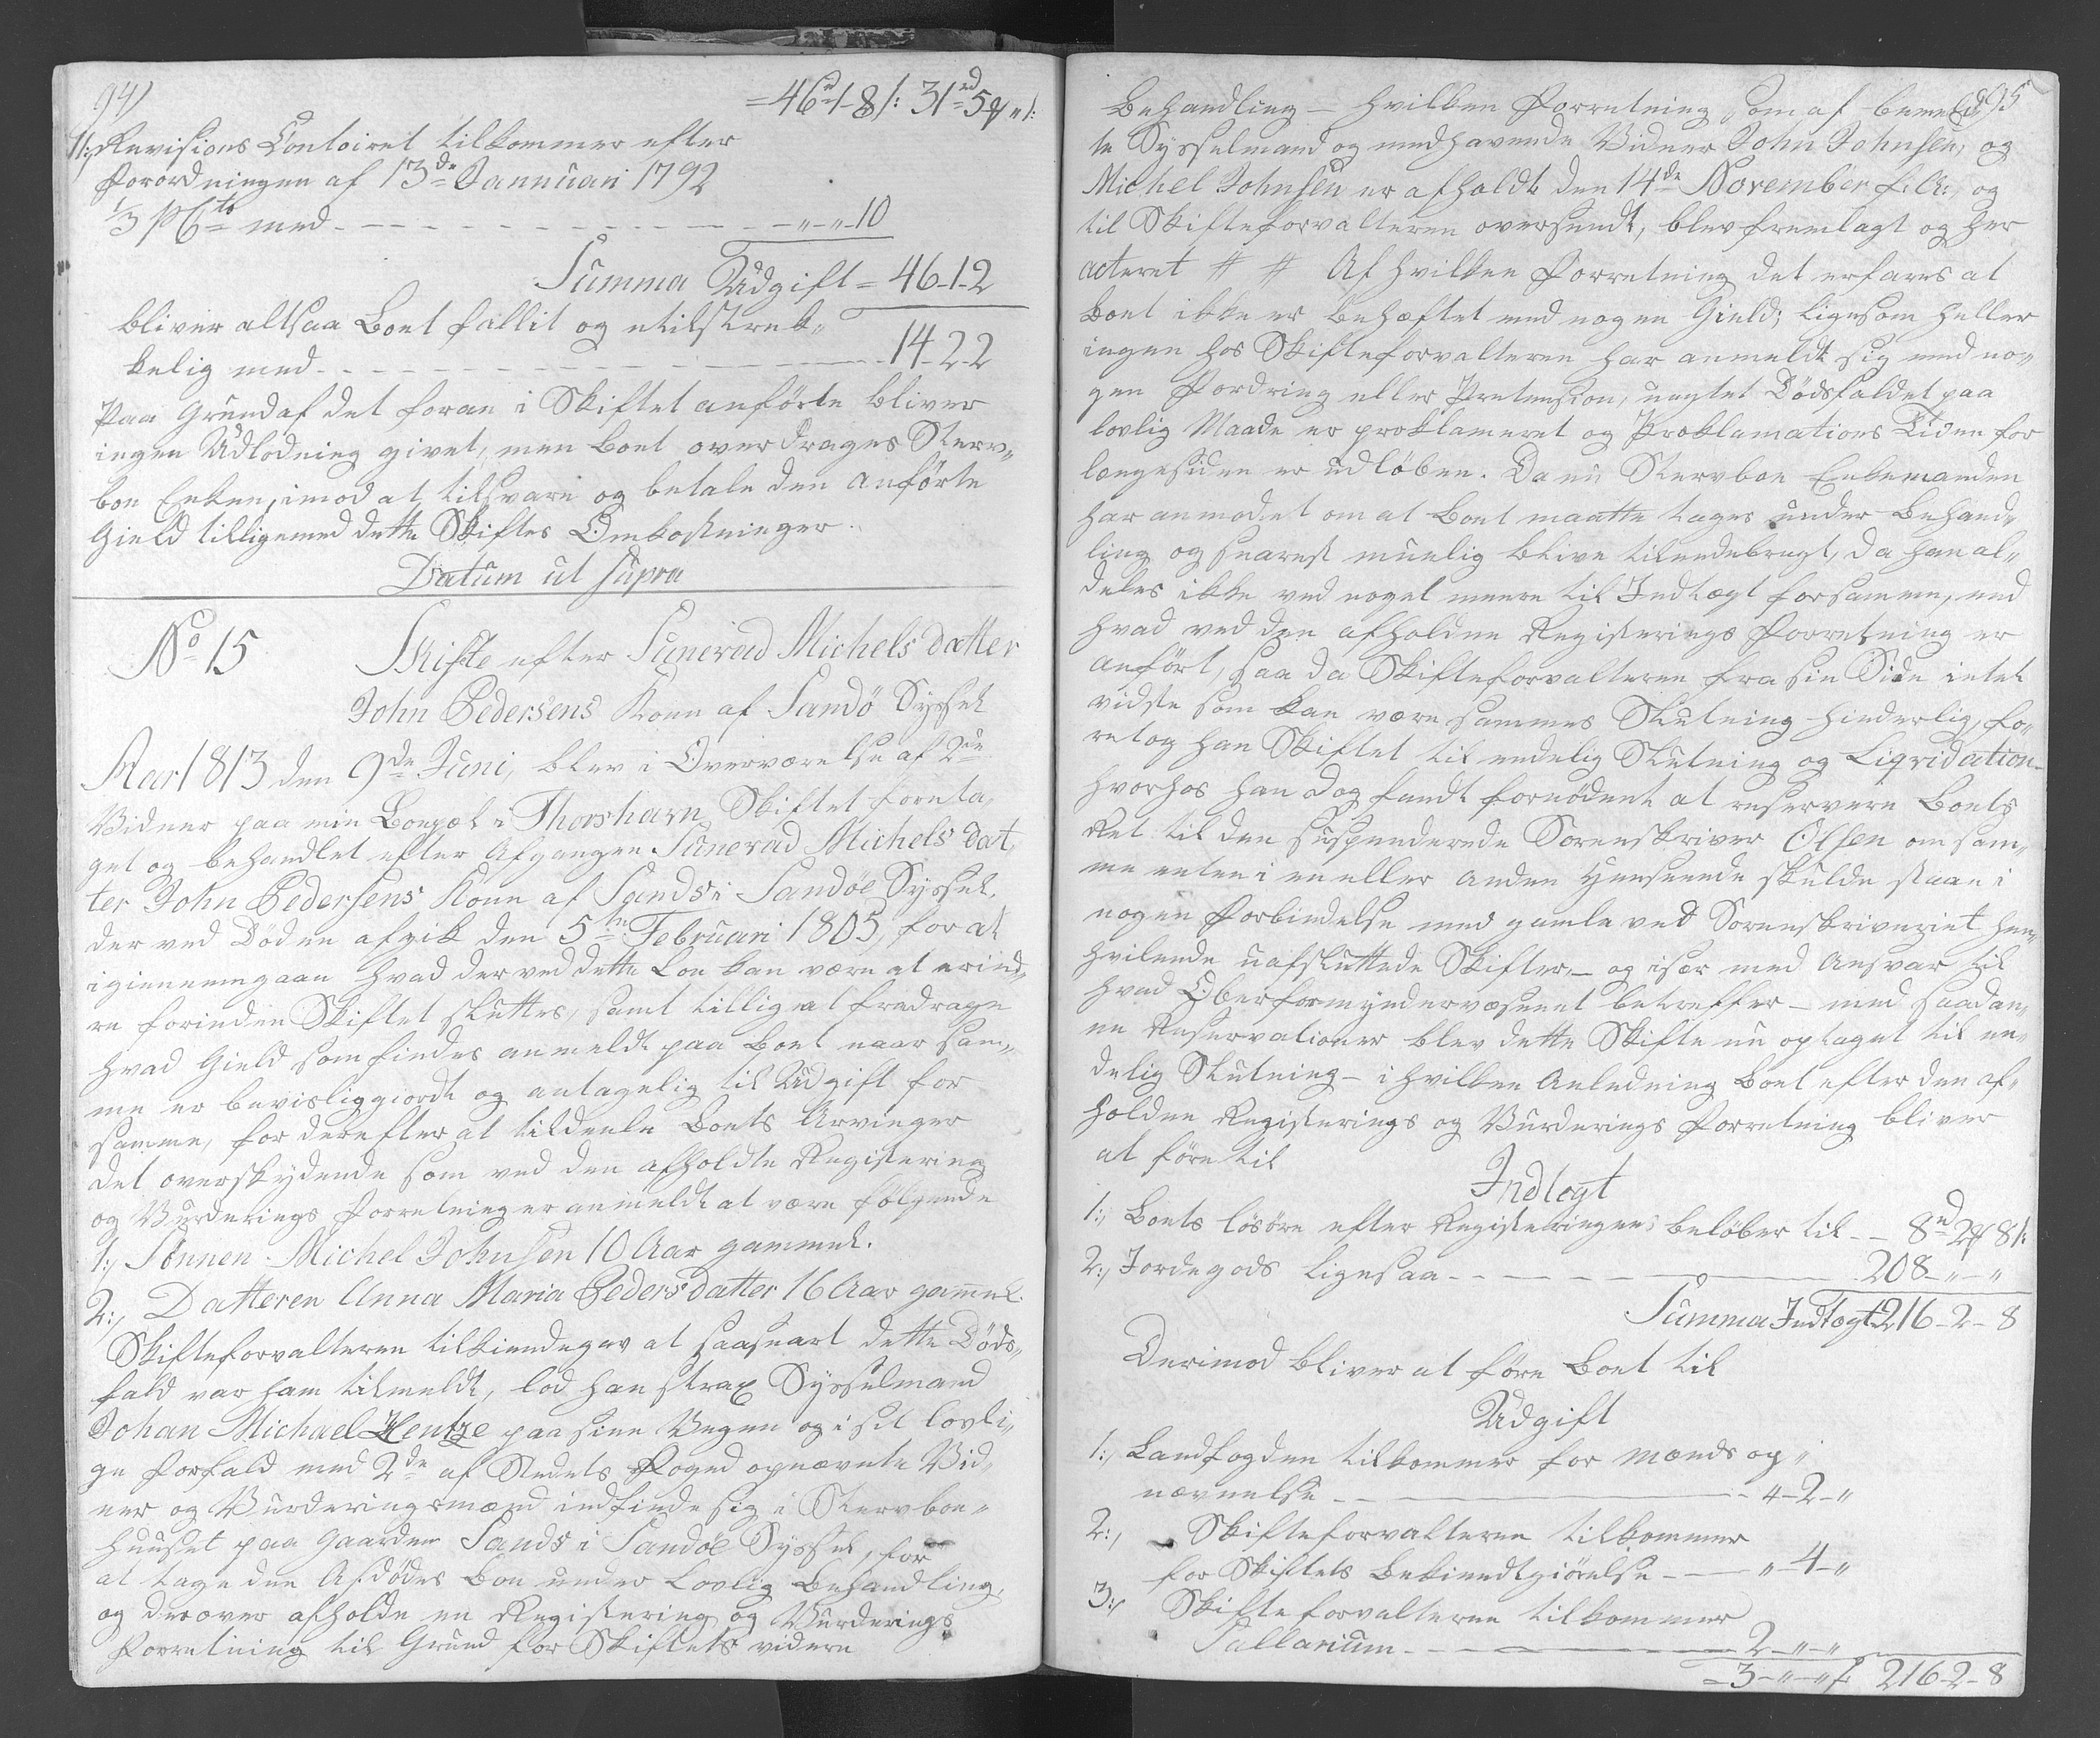 94/
= 46rd 1 - 8 /: 31rd 5 ₰ " /:
11:, Revisions Contoiret tilkommer efter
Forordningen af 13de Jannuari 1792
1/3 pCto med - - - " - " - 10
Summa Udgift = 46-1-2
bliver altsaa Boet fallit og utilstræk„
kelig med - - - 14-2-2
Paa Grund af det foran i Skiftet anførte bliver
ingen Udlodning givet, men Boet overdrages Sterv„
boe Enken, imod at tilsvare og betale den anførte
Gield tilligemed dette Skiftes Omkostninger.
Datum ut supra
No 15 Skifte efter Sunevad Michelsdatter
John Pedersens Kone af Sandö Syssel
Aar 1813 den 9de Juni, blev i Overværelse af 2de
Vidner paa min Boepæl i Thorshavn Skiftet foreta„
get og behandlet efter Afgangen Sunevad Michels dat„
ter John Pedersens Kone af Sands i Sandöe Syssel,
der ved Döden afgik den 5te Februari 1805, for at
igiennemgaae hvad der ved dette Boe kan være at erind„
re forinden Skiftet sluttes, samt tillige at fradrage
hvad Gield som findes anmeldt paa Boet naar sam„
me er bevisliggiordt og antagelig til Udgift for
samme, for derefter at tildeele Boets Arvinger
det overskydende som ved den afholdte Registering
og Vurderings Forretning er anmeldt at være følgende
1:, Sönnen Michel Johnsen 10 Aar gammel.
2:, Datteren Anna Maria Pedersdatter 16 Aar gammel.
Skifteforvalteren tilkiendegav at saasnart dette Döds„
fald var ham tilmeldt, lod han strax Sysselmand
Johan Michael Hentze paa sine Vegne og i sit lovli„
ge Forfald med 2de af Stedets Foged opnævnte Vid„
ner og Vurderingsmænd indfinde sig i Stervboe„
huuset paa Gaarden Sands i Sandöe Syssel, for
at tage den Afdödes Boe under Lovlig Behandling,
og derover afholde en Registering og Vurderings
Forretning til Grund for Skiftets videre
95
Behandling - hvilken Forretning som af bemeld„
te Sysselmand og medhavende Vidner John Johnsen, og
Michel Johnsen er afholdt den 14de November f: A:, og
til Skifteforvalteren oversendt, blev fremlagt og her
acteret # # Af hvilken Forretning det erfares at
Boet ikke er behæftet med nogen Gield; ligesom heller
ingen hos Skifteforvalteren har anmeldt sig med no„
gen Fordring eller Pretension, uagtet Dödsfaldet paa
lovlig Maade er proklameret og Proklamations Tiden for
længesiden er udlöben. Da nu Stervboe Enkemanden
har anmodet om at Boet maatte tages under Behand„
ling og snarest muelig blive tilendebragt, da han al„
deles ikke ved noget meere til Indtægt for samme, end
hvad ved den afholdne Registerings Forretning er
anført, saa da Skifteforvalteren fra sin Side intet
vidste som kan være sammes Slutning hinderlig, fo„
retog han Skiftet til endelig Slutning og Liqvidation -
hvorhos han dog fandt fornödent at reservere Boets
Ret til den suspenderede Sorenskriver Olsen om sam„
me enten i en eller anden Henseende skulde staae i
nogen Forbindelse med gamle ved Sorenskriveriet hen„
hvilende uafsluttede Skifter, - og især med Ansvar til
hvad Oberformyndervæsenet betreffer - med saadan„
ne Reservationer blev dette Skifte nu optaget til en„
delig Slutning - i hvilken Anledning Boet efter den af„
holdne Registerings og Vurderings Forretning bliver
at före til
Indtegt
1:, Boets lösöre efter Registeringen, belöber til - - 8rd 2 ₰ 8 /:
2:, Jordegods ligesaa - - - 208 - " - "
Summa Indtægt 216-2-8
Derimod bliver at före Boet til
Udgift
1:, Landfogden tilkommer for Mænds op„
nævnelse - - - 4-2-"
2:, Skifteforvalteren tilkommer
for Skiftets Bekiendtgiörelse - - - " - 4 - "
3:, Skifteforvalteren tilkommer
Sallarium - - - 2 - " - "
= 3 - " - " /: 216-2-8